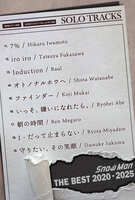 SOLO TRACKS
• 7% / Hikaru Iwamoto
• iro iro / Tatsuya Fukazawa
• Induction / Raul
• オトノナルホウへ / Shota Watanabe
• ファインダー / Koji Mukai
• いっそ、嫌いになれたら。 / Ryohei Abe
• 朝の時間 / Ren Meguro
• 1 - だって止まらない / Ryota Miyadate
• 守りたい、その笑顔 / Daisuke Sakuma
Snow Man
THE BEST 2020 - 2025